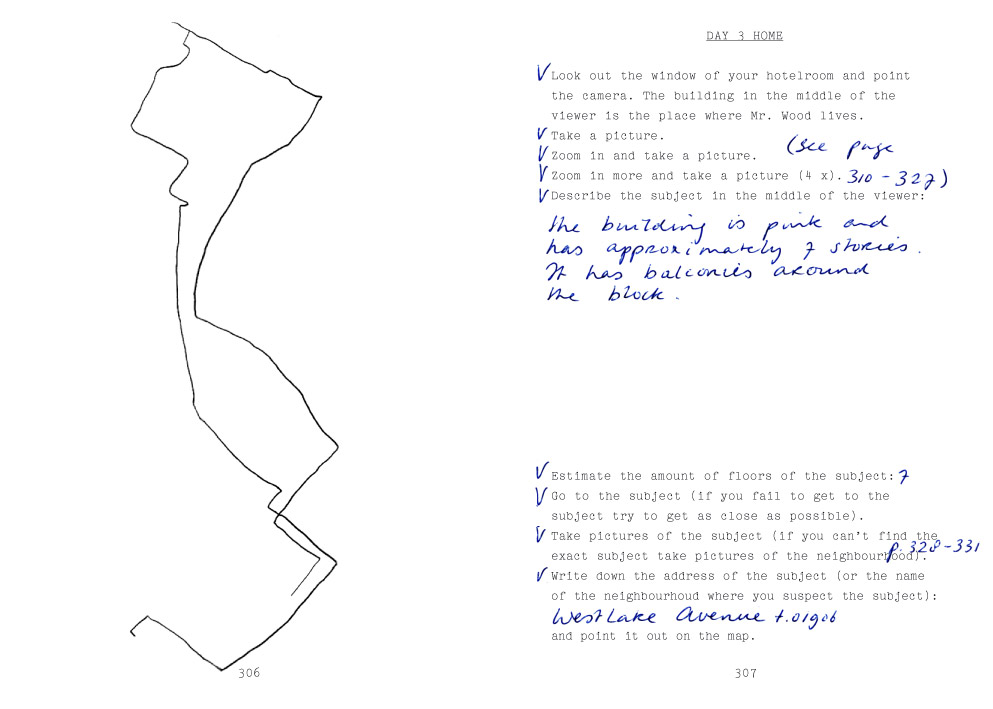 DAY 3 HOME
V Look out the window of your hotelroom and point
the camera. The building in the middle of the
viewer is the place where Mr. Wood lives.
V Take a picture.
V Zoom in and take a picture. (see page
V Zoom in more and take a picture (4 x). 310 - 327)
V Describe the subject in the middle of the viewer:
the building is pink and
has approximately 7 stories.
It has balconies around
the block.
V Estimate the amount of floors of the subject: 7
V Go to the subject (if you fail to get to the
subject try to get as close as possible).
V Take pictures of the subject (if you can't find the
exact subject take pictures of the neighbourhood). p. 328-331
V Write down the address of the subject (or the name
of the neighbourhoud where you suspect the subject):
WestLake Avenue t.01906
and point it out on the map.
306
307